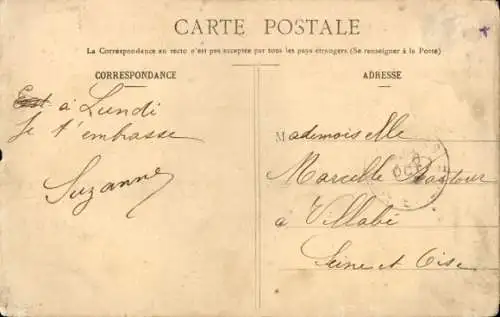 CARTE POSTALE
La Correspondance au recto n'est pas acceptée par tous les pays étrangers (Se renseigner à la Poste)
CORRESPONDANCE
à Lundi
Je t'embrasse
Suzanne
ADRESSE
Mademoiselle
Marcelle
à Villabé
Seine et Oise